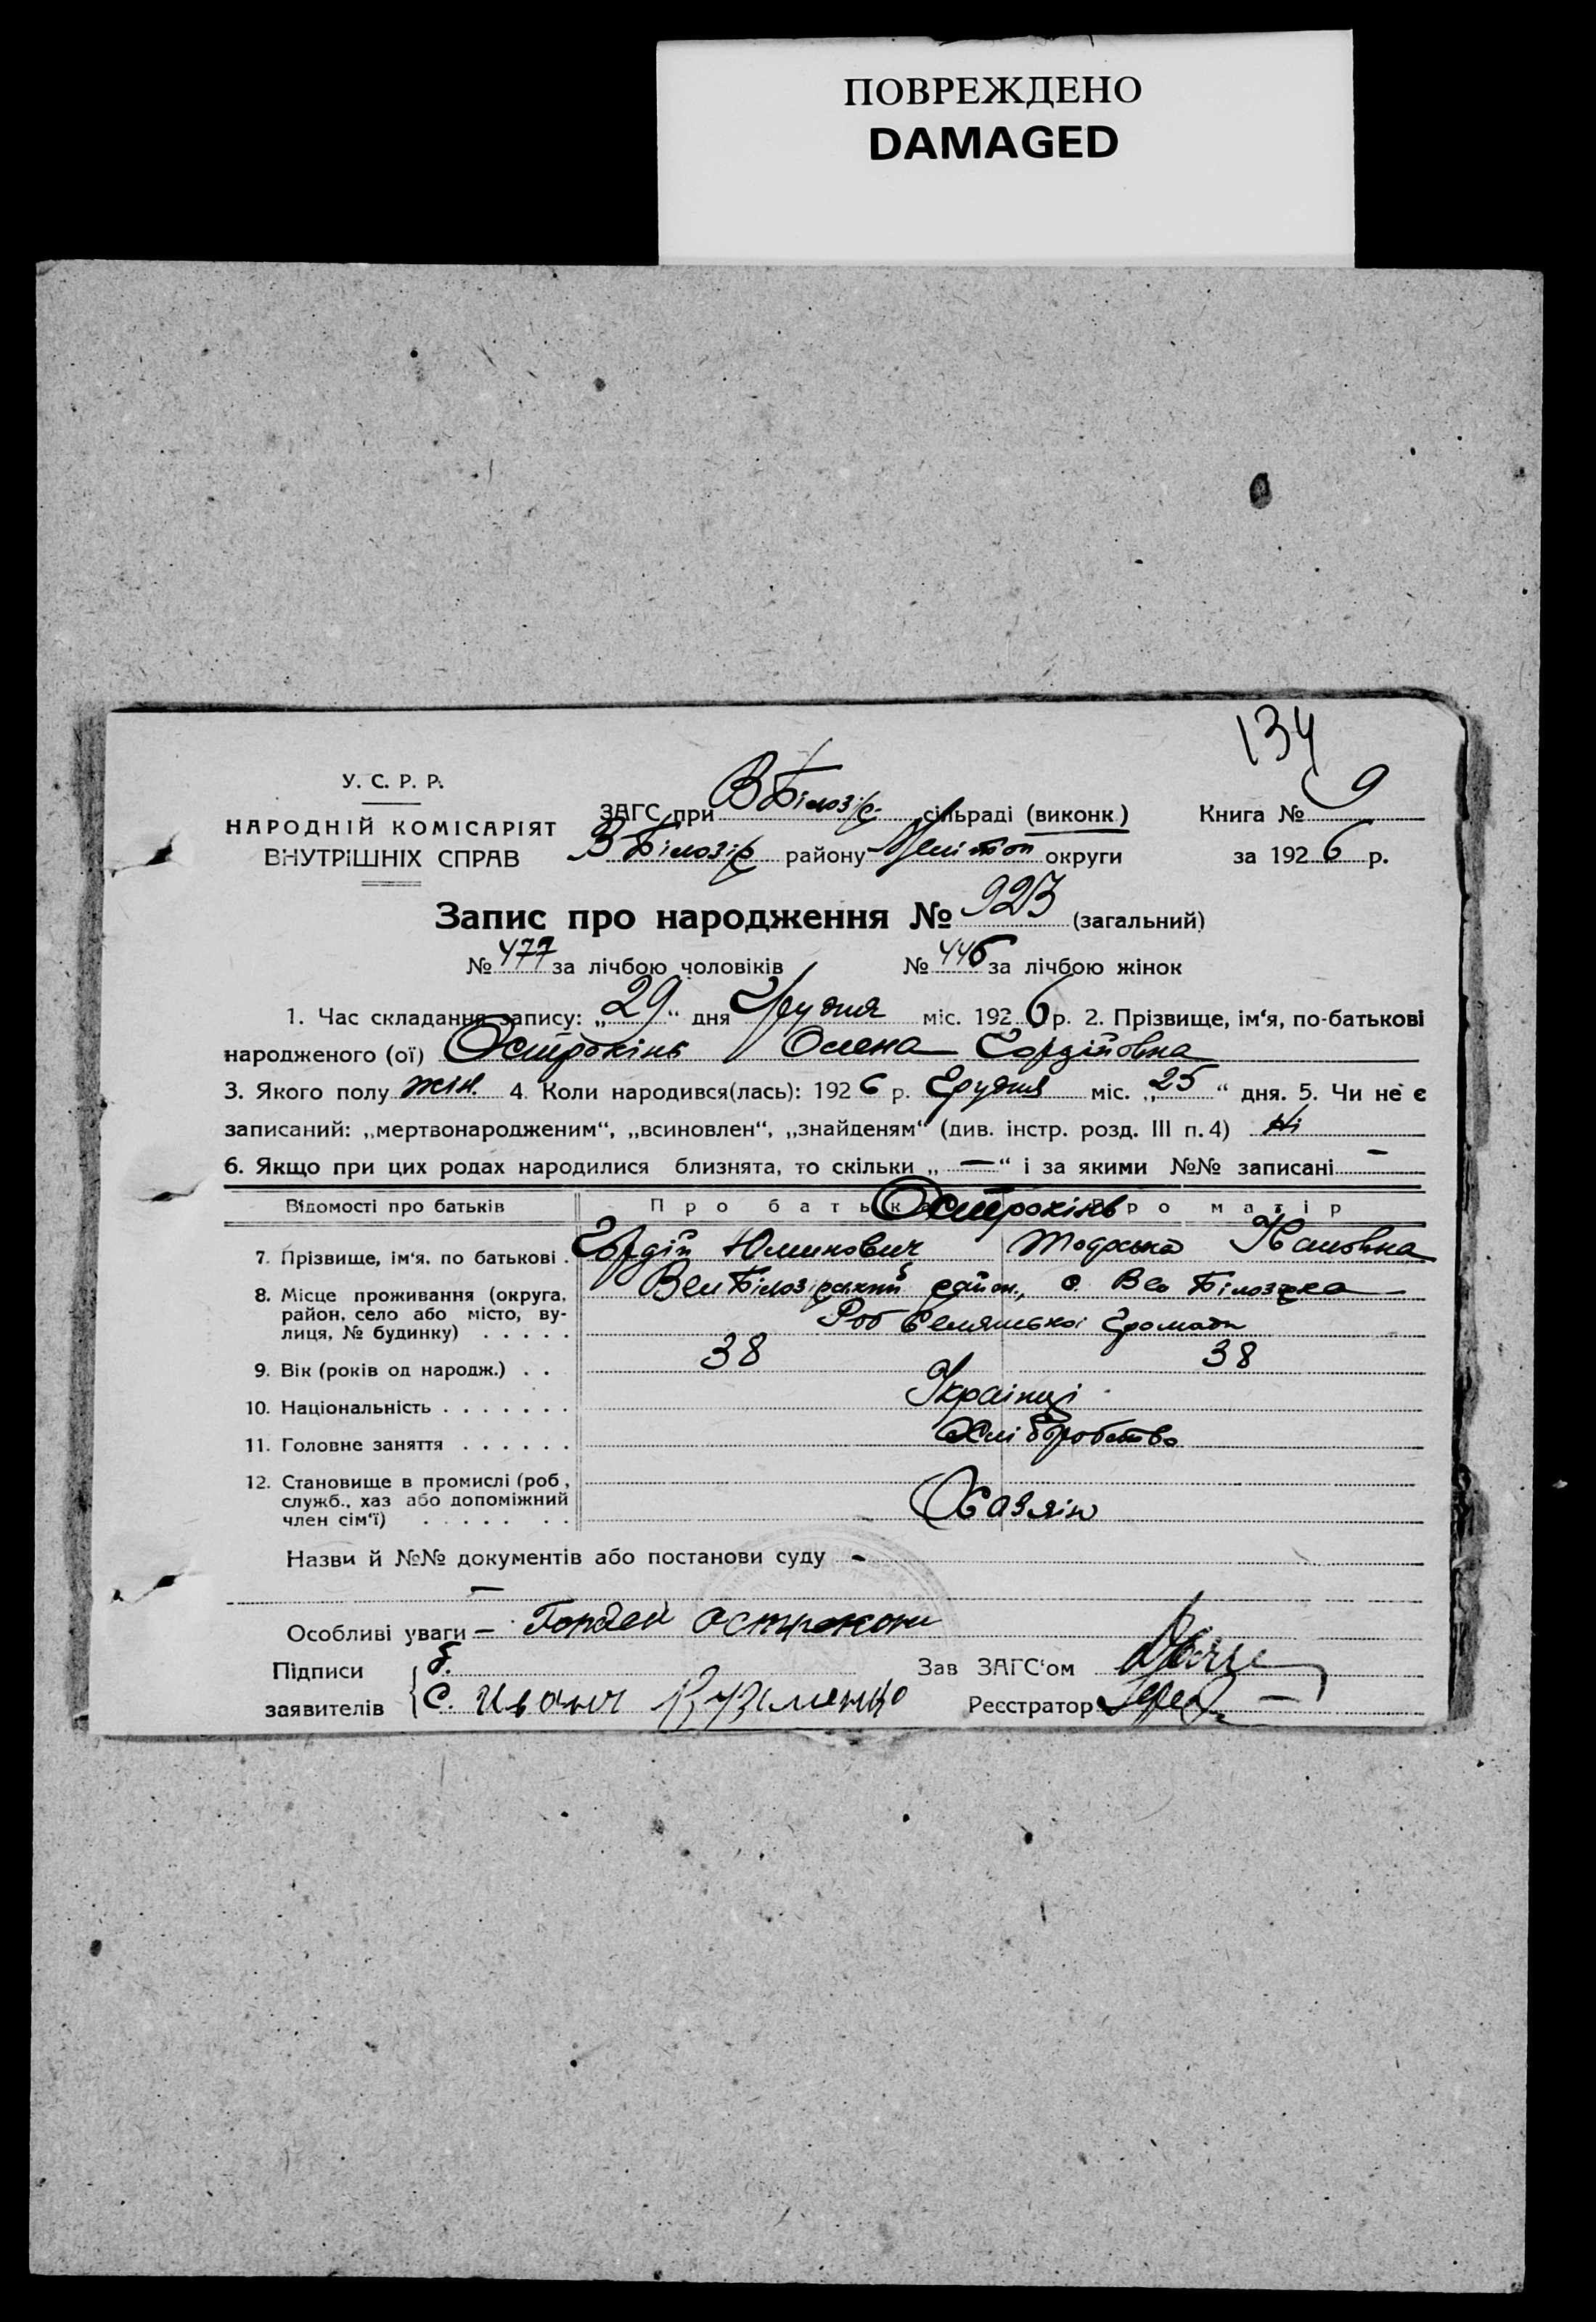 ПОВРЕЖДЕНО
DAMAGED
134
У. С. Р. Р.
НАРОДНІЙ КОМІСАРІЯТ
ВНУТРІШНІХ СПРАВ
ЗАГС при В Білозір. сільраді (виконк)
В Білозір району Мелітоп округи
Книга № 9
за 1926 р.
Запис про народження № 923 (загальний)
№ 477 за лічбою чоловіків № 446 за лічбою жінок
1. Час складання запису: „29“ дня Грудня міс. 1926 р. 2. Прізвище, ім‘я, по-батькові
народженого (ої) Острокінь Олена Гордіївна
3. Якого полу жін. 4. Коли народився(лась): 1926 р. Грудня міс. „25“ дня. 5. Чи не є
записаний: „мертвонародженим“, „всиновлен“, „знайденям“ (див. інстр. розд. III п. 4) Ні
6. Якщо при цих родах народилися близнята, то скільки „—“ і за якими №№ записані —
Відомості про батьків Про батька Про матір
Острокінь
7. Прізвище, ім‘я, по батькові . Гордій Юлинович
8. Місце проживання (округа, район, село або місто, ву-
лиця, № будинку) . . . . . Вел Білозірський район, с. Вел Білозірка
Селянської Громади
9. Вік (років од народж.) . . 38 38
10. Національність . . . . . . . Українці
11. Головне заняття . . . . . . Хліборобство
12. Становище в промислі (роб,
служб., хаз або допоміжний
член сім‘ї) . . . . . . . Хазяїн
Назви й №№ документів або постанови суду -
—
Особливі уваги — Гордей
Підписи
заявителів
б.
с. Кузьменко
Зав ЗАГС‘ом
Реєстратор